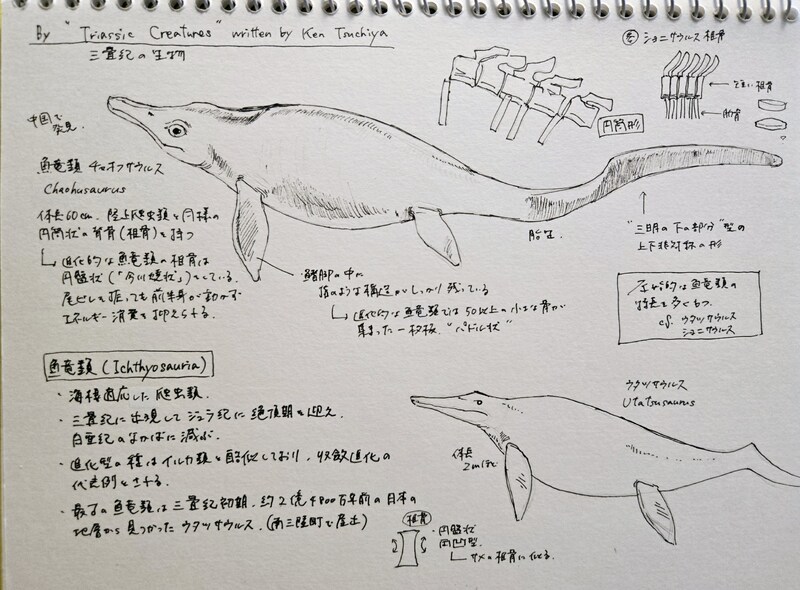 By "Triassic Creatures" written by Ken Tsuchiya
三畳紀の生物
中国で
発見.
魚竜類 チャオフサウルス
Chaohusaurus
体長60cm. 陸上爬虫類と同様の
円筒状の背骨(椎骨)を持つ
進化的な魚竜類の椎骨は
円盤状("今川焼状")をしている.
尾ビレを振っても前半身が動かず
エネルギー消費を抑えられる.
円筒形
参 ショニサウルス椎骨
椎骨
肋骨
胎生.
"三日月の下の部分"型の
上下非対称の形
鰭脚の中に
指のような構造がしっかり残っている
進化的な魚竜類では50以上の小さな骨が
集まった一枚板. "パドル状"
原始的な魚竜類の
特徴を多くもつ.
cf. ウタツサウルス
ショニサウルス
魚竜類 (Ichthyosauria)
・海棲適応した爬虫類.
・三畳紀に出現してジュラ紀に絶頂期を迎え
白亜紀のなかばに滅ぶ.
・進化型の種はイルカ類と酷似しており, 収斂進化の
代表例とされる.
・最古の魚竜類は三畳紀初期. 約2億4800万年前の日本の
地層から見つかったウタツサウルス. (南三陸町で産出)
ウタツサウルス
Utatsusaurus
体長
2mほど
椎骨
・円盤状
両凹型.
サメの椎骨に似る.